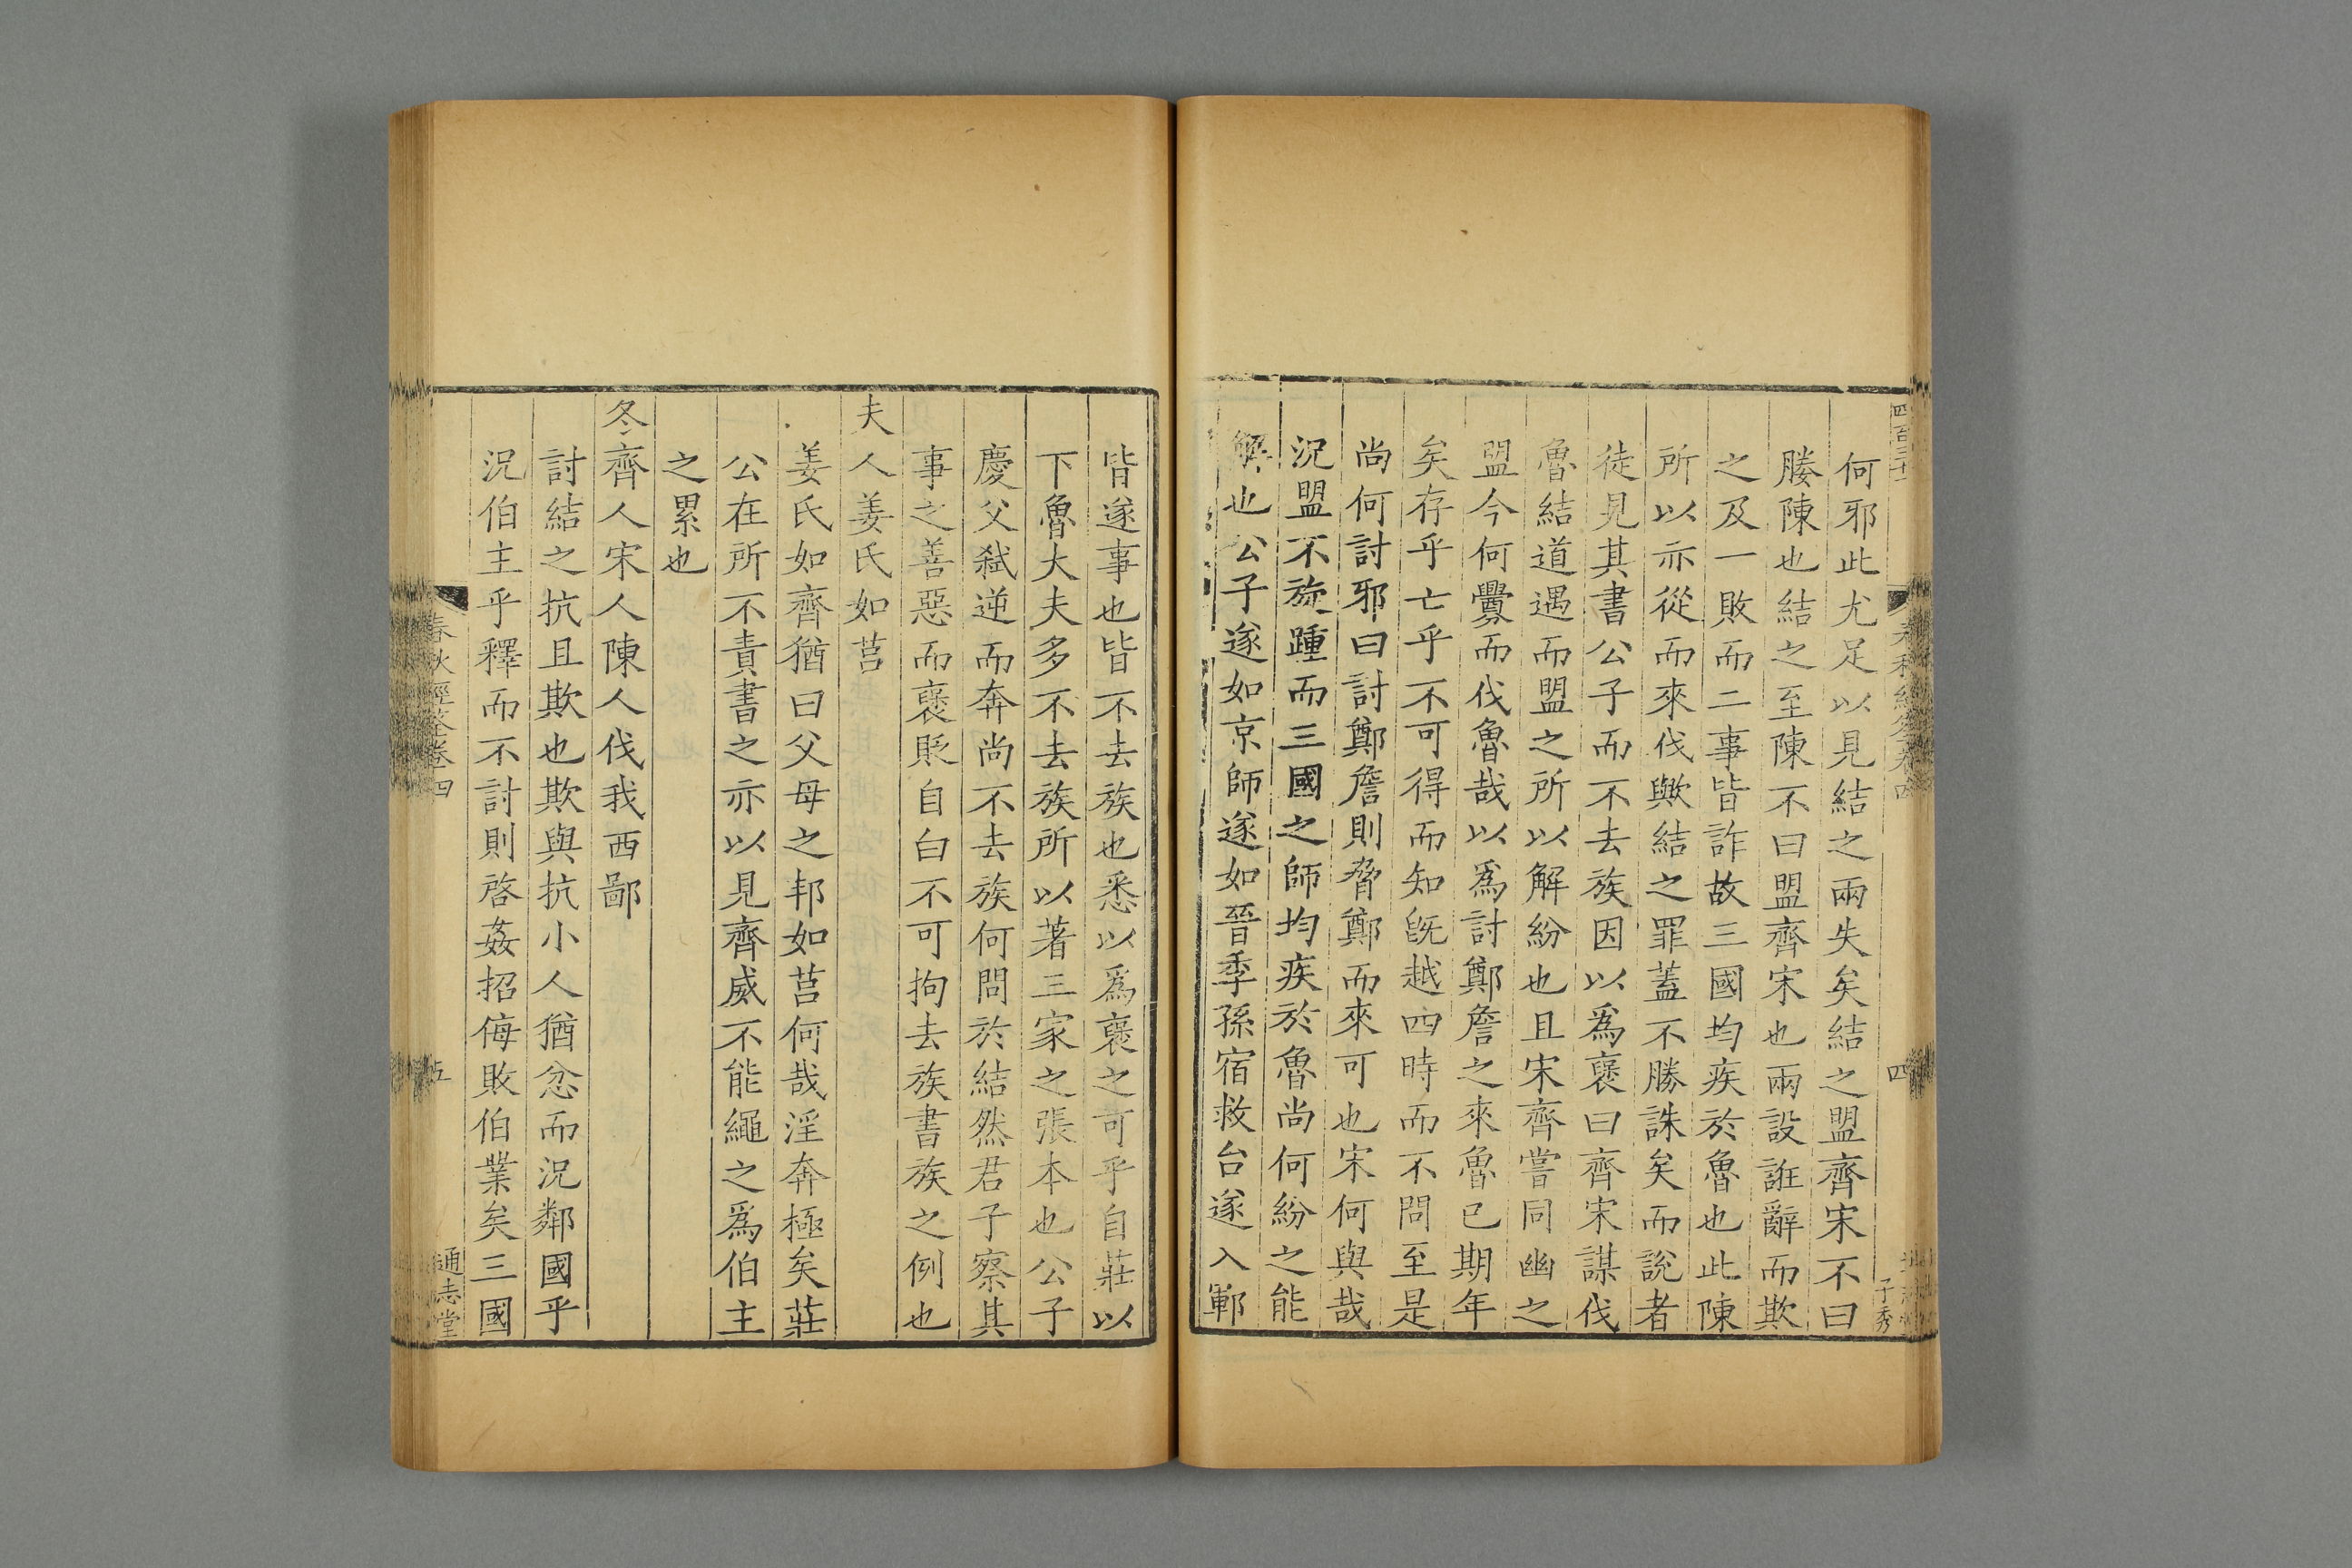 何邪此尤足以見結之兩失矣結之盟齊宋不曰
媵陳也結之至陳不曰盟齊宋也兩設誑辭而欺
之及一敗而二事皆詐故三國均疾於魯也此陳
所以亦從而來伐歟結之罪蓋不勝誅矣而說者
徒見其書公子而不去族因以爲襃曰齊宋謀伐
魯結道遇而盟之所以解紛也且宋齊嘗同幽之
盟今何釁而伐魯哉以爲討鄭詹之來魯已期年
矣存乎亡乎不可得而知旣越四時而不問至是
尚何討邪曰討鄭詹則脅鄭而來可也宋何與哉
況盟不旋踵而三國之師均疾於魯尚何紛之能
解也公子遂如京師遂如晉季孫宿救台遂入鄆
四
子秀
皆遂事也皆不去族也悉以爲襃之可乎自莊以
下魯大夫多不去族所以著三家之張本也公子
慶父弑逆而奔尚不去族何問於結然君子察其
事之善惡而襃貶自白不可拘去族書族之例也
夫人姜氏如莒
姜氏如齊猶曰父母之邦如莒何哉淫奔極矣莊
公在所不責書之亦以見齊威不能繩之爲伯主
之累也
冬齊人宋人陳人伐我西鄙
討結之抗且欺也欺與抗小人猶忿而況鄰國乎
況伯主乎釋而不討則啓姦招侮敗伯業矣三國
春秋經筌卷四
五
通志堂